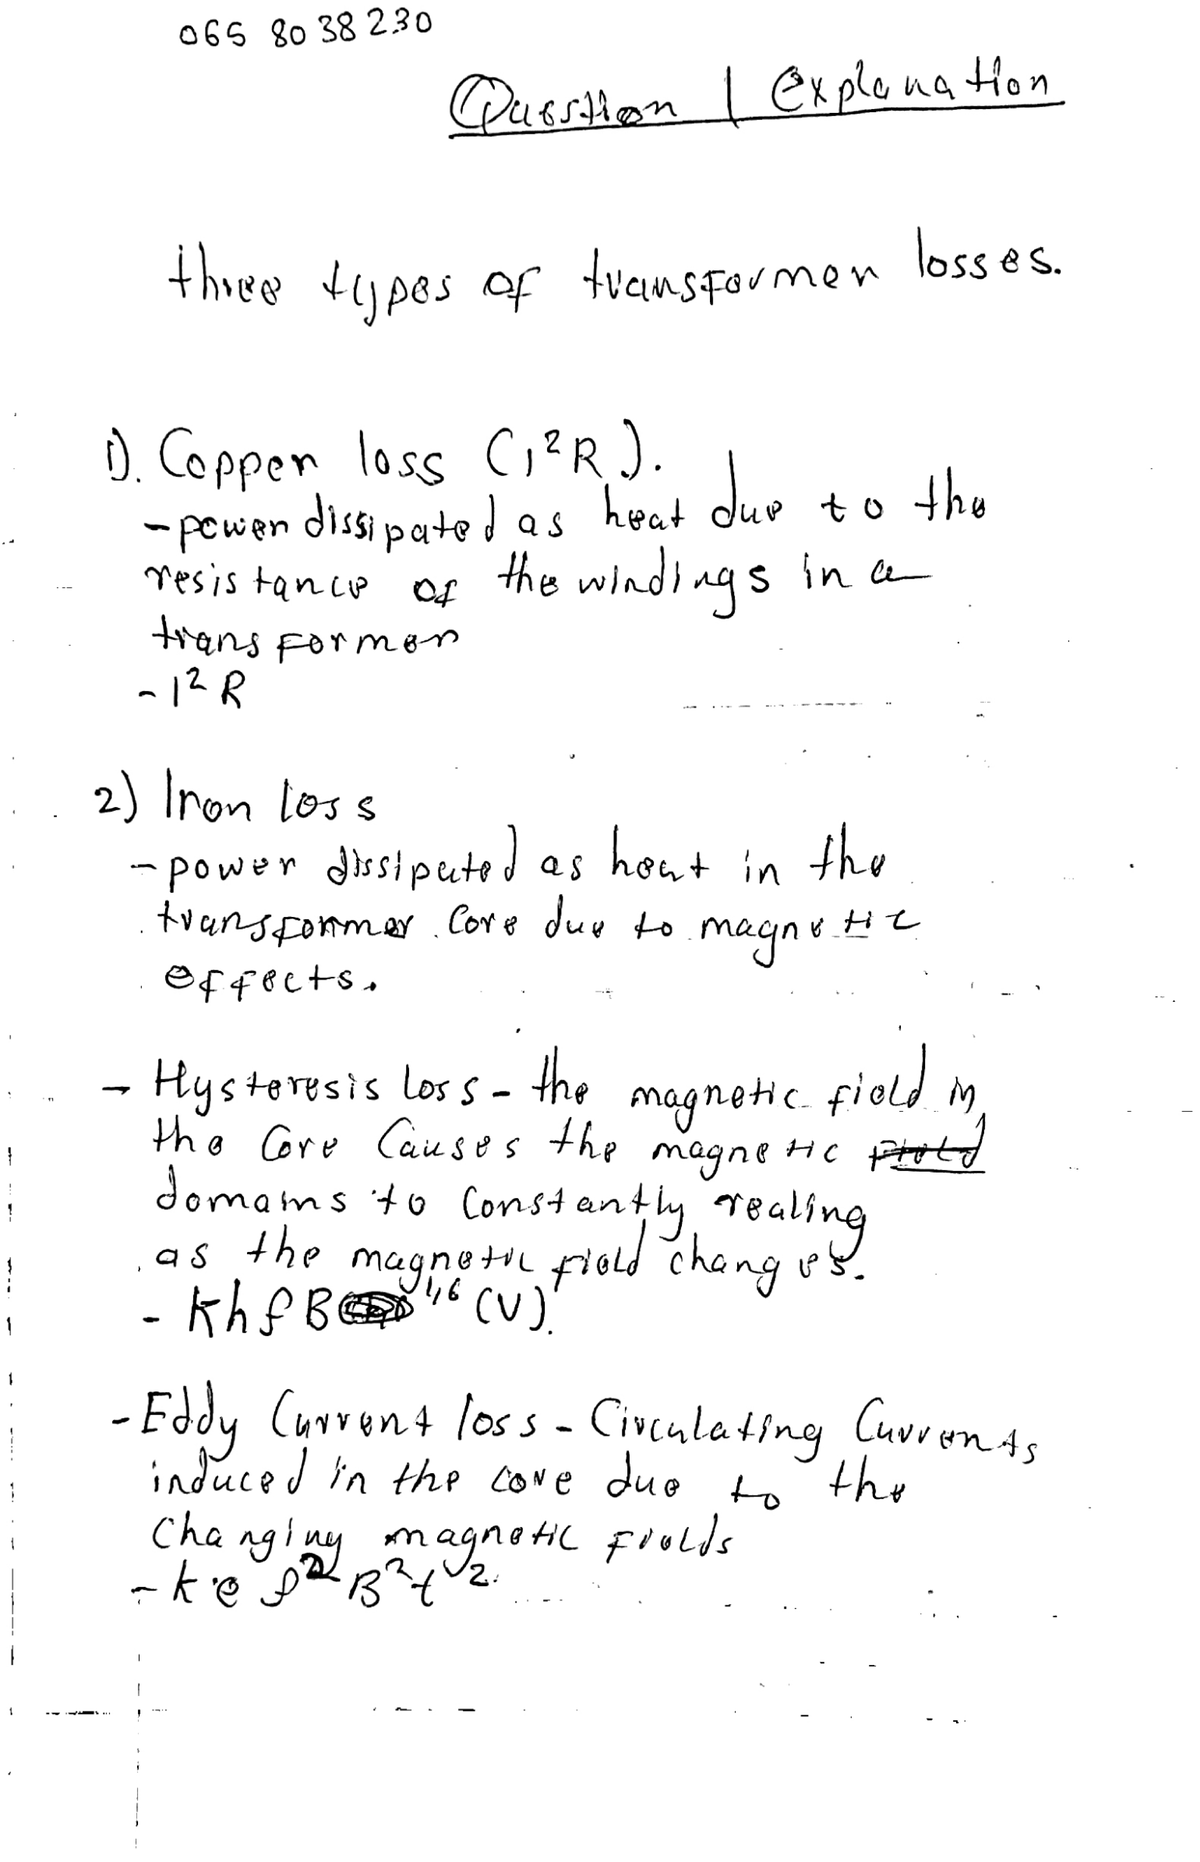 065 80 38 230
Question 1 explanation
three types of transformer losses.
1). Copper loss (I²R).
- power dissipated as heat due to the
resistance of the windings in a
transformer
- I²R
2) Iron loss
- power dissipated as heat in the
transformer core due to magnetic
effects.
- Hysteresis loss - the magnetic field in
the core causes the magnetic field
domains to constantly realing
as the magnetic field changes.
- Kh f B 1,6 (V).
- Eddy Current loss - Circulating Currents
induced in the core due to the
Changing magnetic fields
- k e f² B² t²